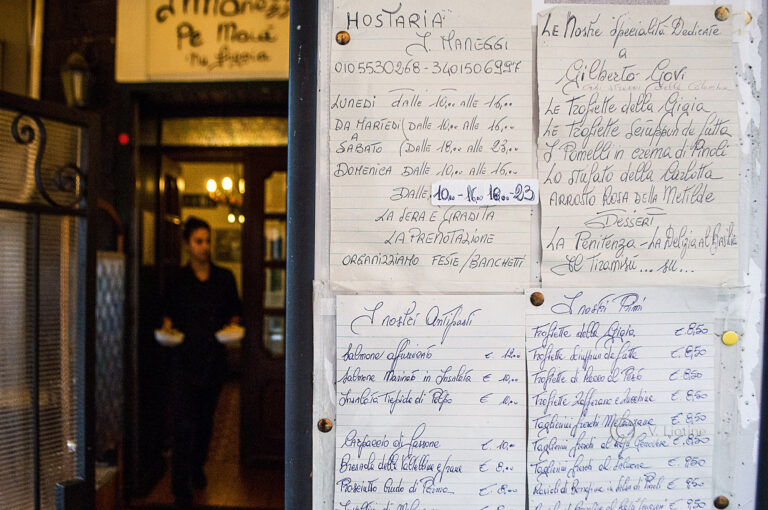 I Maneggi
Pe Maiá
HOSTARIA
I MANEGGI
0105530268 - 3401506997
LUNEDÌ DALLE 10,00 ALLE 16,00
DA MARTEDÌ (DALLE 10,00 ALLE 16,00
A
SABATO (DALLE 18,00 ALLE 23,00
DOMENICA DALLE 10,00 ALLE 16,00
DALLE 10,00 - 16,00 18,00 - 23
LA SERA È GRADITA
LA PRENOTAZIONE
ORGANIZZIAMO FESTE/BANCHETTI
LE Nostre Specialità Dedicate
a
Gilberto Govi
Le Trofiette della Gigia
Le Trofiette Seruppun de futta
I Pomelli in crema di Pinoli
Lo stufato della Carlotta
ARROSTO ROSA DELLA Metilde
DESSERT
La Penitenza - La Delizia al Basilico
Il Tiramisù... su...
I nostri Antipasti
Salmone affumicato € 12,00
Salmone Marinato in Insalata € 10,00
Insalata Tiepida di Polpo € 10,00
Carpaccio di Fassone € 10,00
Bresaola della Valtellina e grana € 8,00
Prosciutto Crudo di Parma € 8,00
I nostri Primi
Trofiette della Gigia € 8,50
Trofiette Seruppun de futte € 8,50
Trofiette di Rocco al Pesto € 8,50
Trofiette Zafferano e zucchine € 8,50
Taglierini freschi Melanzane € 8,50
Taglierini freschi al Genovese € 8,50
Taglierini freschi al Salmone € 8,50
Ravioli di Borragine in salsa di Pinoli € 8,50